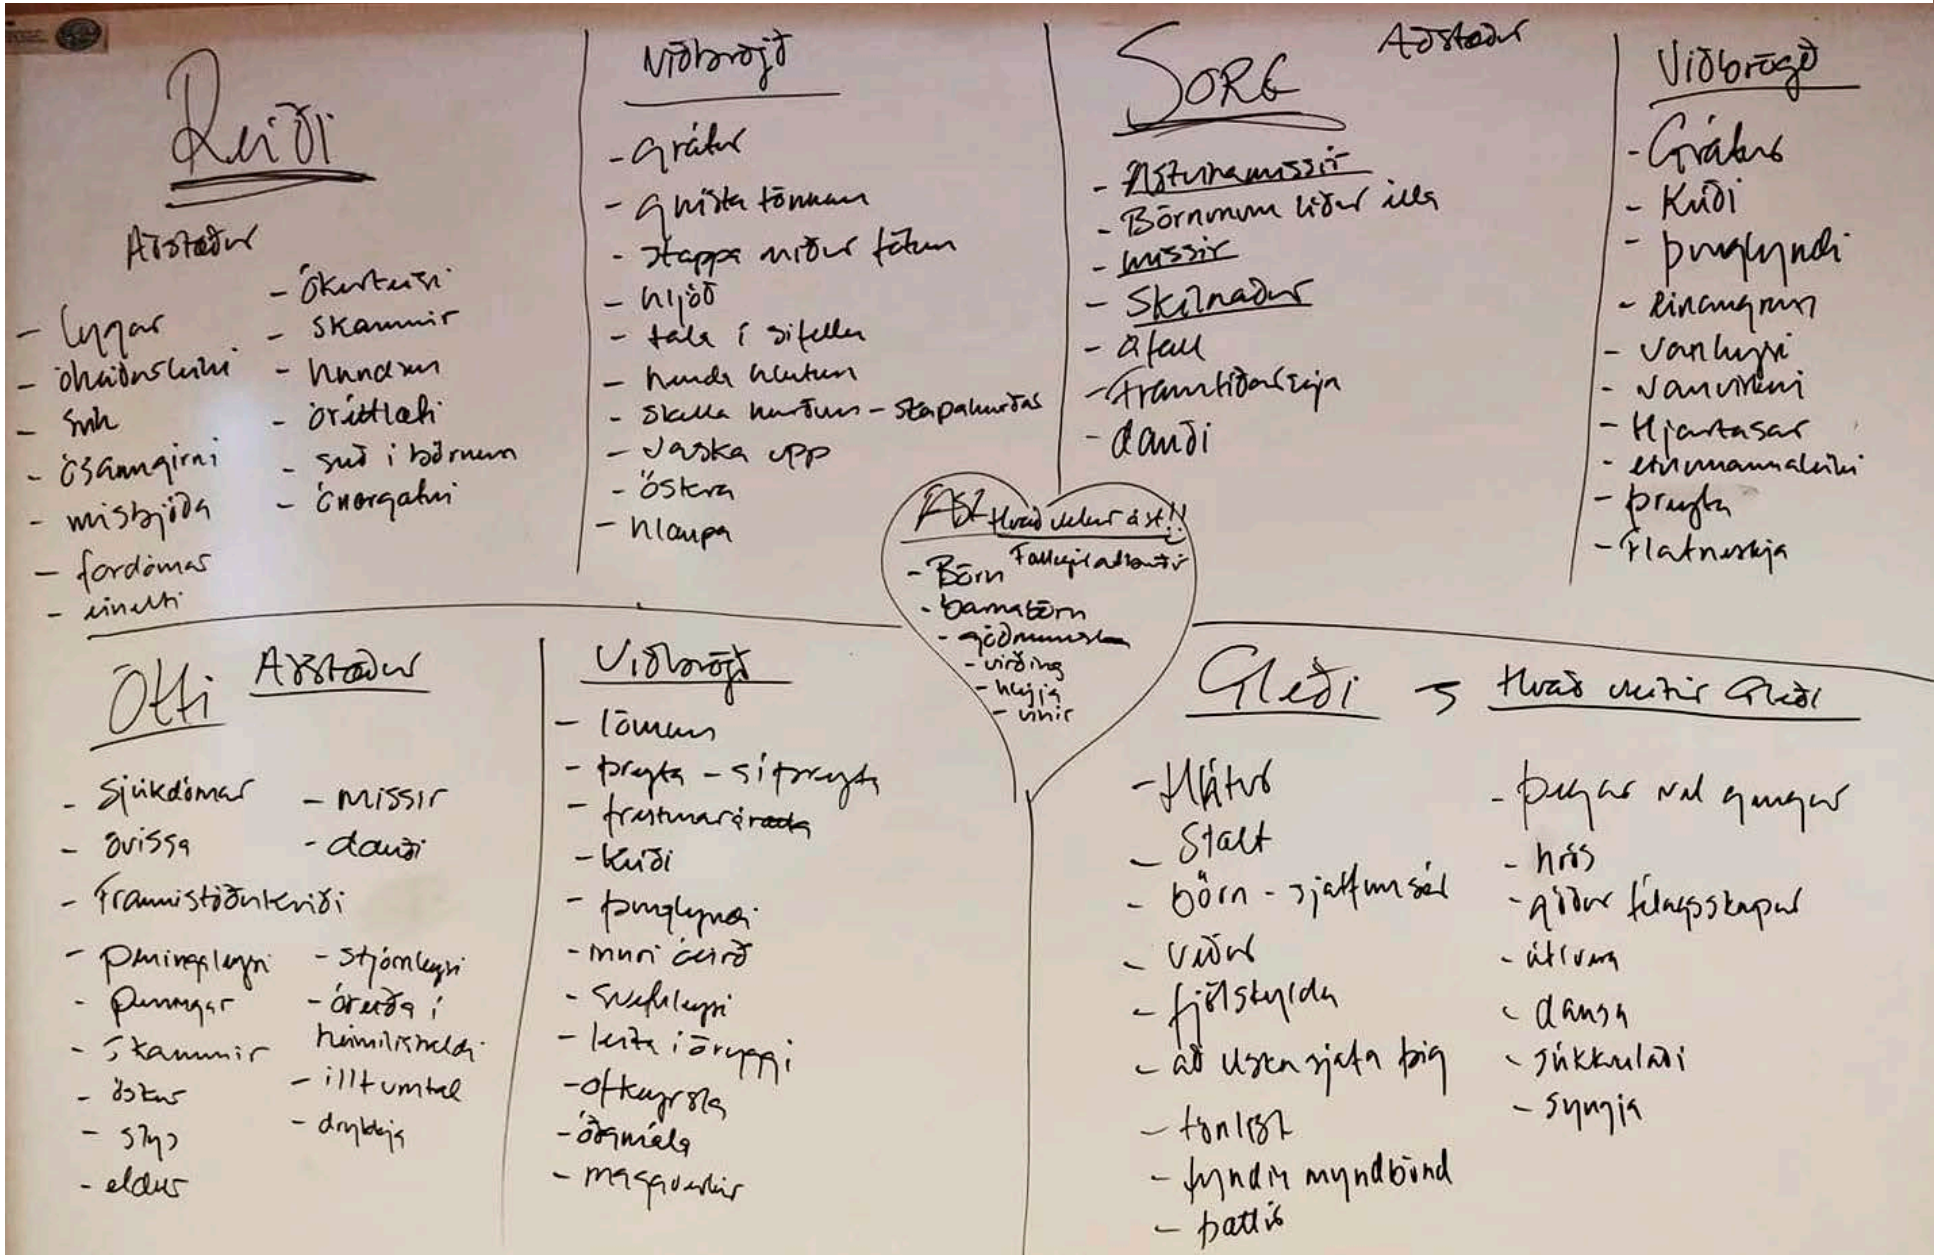 Reiði
Aðstæður
- lygar
- óheiðarleiki
- suð
- ósanngirni
- misbjóða
- fordómar
- einelti
- ókurteisi
- skammir
- hundsun
- óréttlæti
- suð í börnum
- ónærgætni
Viðbrögð
- grátur
- gnísta tönnum
- stappa niður fótum
- hljóð
- tala í sífellu
- henda hlutum
- skella hurðum - skápahurðas
- vaska upp
- öskra
- hlaupa
SORG
Aðstæður
- Ástvinamissir
- Börnunum líður illa
- missir
- Skilnaður
- áfall
- Framtíðarsýn
- dauði
Viðbrögð
- Grátur
- Kvíði
- þunglyndi
- einangrun
- vanlysi
- vanvirkni
- Hjartasár
- einmannaleiki
- þreyta
- Flatneskja
ÁST Hvað vekur ást!!
- Börn
- barnabörn
- góðmennska
- virðing
- hlýja
- vinir
Ótti
Aðstæður
- sjúkdómar
- óvissa
- Frammistöðukvíði
- peningaleysi
- peningar
- skammir
- öskur
- slys
- eldur
- missir
- dauði
- stjórnleysi
- óreiða í
heimilishaldi
- illt umtal
- drykkja
Viðbrögð
- lömun
- þreyta - síþreyta
- kvíði
- þunglyndi
- innri óeirð
- svefnleysi
- leita í öryggi
- ofkeyrsla
- óðamála
- magaverkir
Gleði → Hvað veitir Gleði
- Hlátur
- Stolt
- börn - sjálfum sér
- Veður
- fjölskylda
- að elska sjálfa þig
- tónlist
- fyndin myndbönd
- þættir
- þegar vel gengur
- hrós
- góður félagsskapur
- útivera
- dansa
- súkkulaði
- syngja